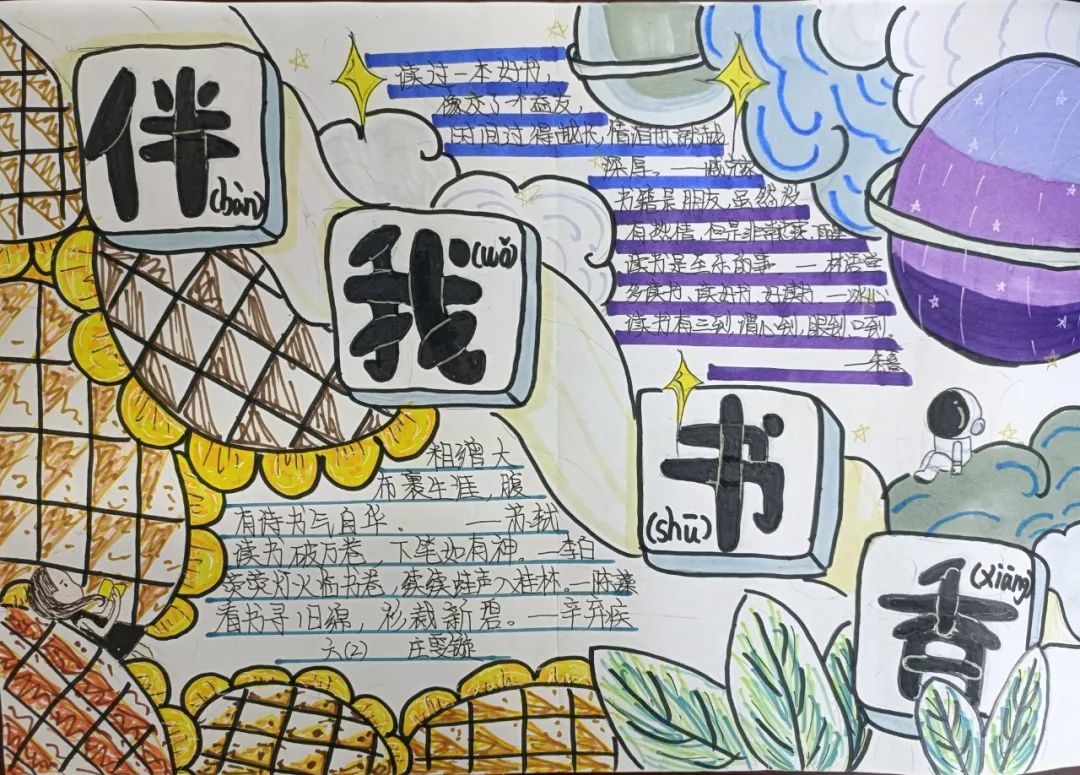 伴
(bàn)
我
(wǒ)
书
(shū)
香
(xiāng)
读过一本好书，
像交了个益友，
时间过得越长，情谊也就越
深厚。——臧克家
书籍是朋友，虽然没
有热情，但是非常忠实。
读书是至乐的事——林语堂
多读书、读好书、好读书——冰心
读书有三到，谓心到，眼到，口到。
——朱熹
粗缯大
布裹生涯，腹
有诗书气自华。——苏轼
读书破万卷，下笔如有神。—李白
荧荧灯火临书卷，续续蛙声入桂林。—陈藻
看书寻旧绵，衫裁新碧。——辛弃疾
六(2) 庄雯